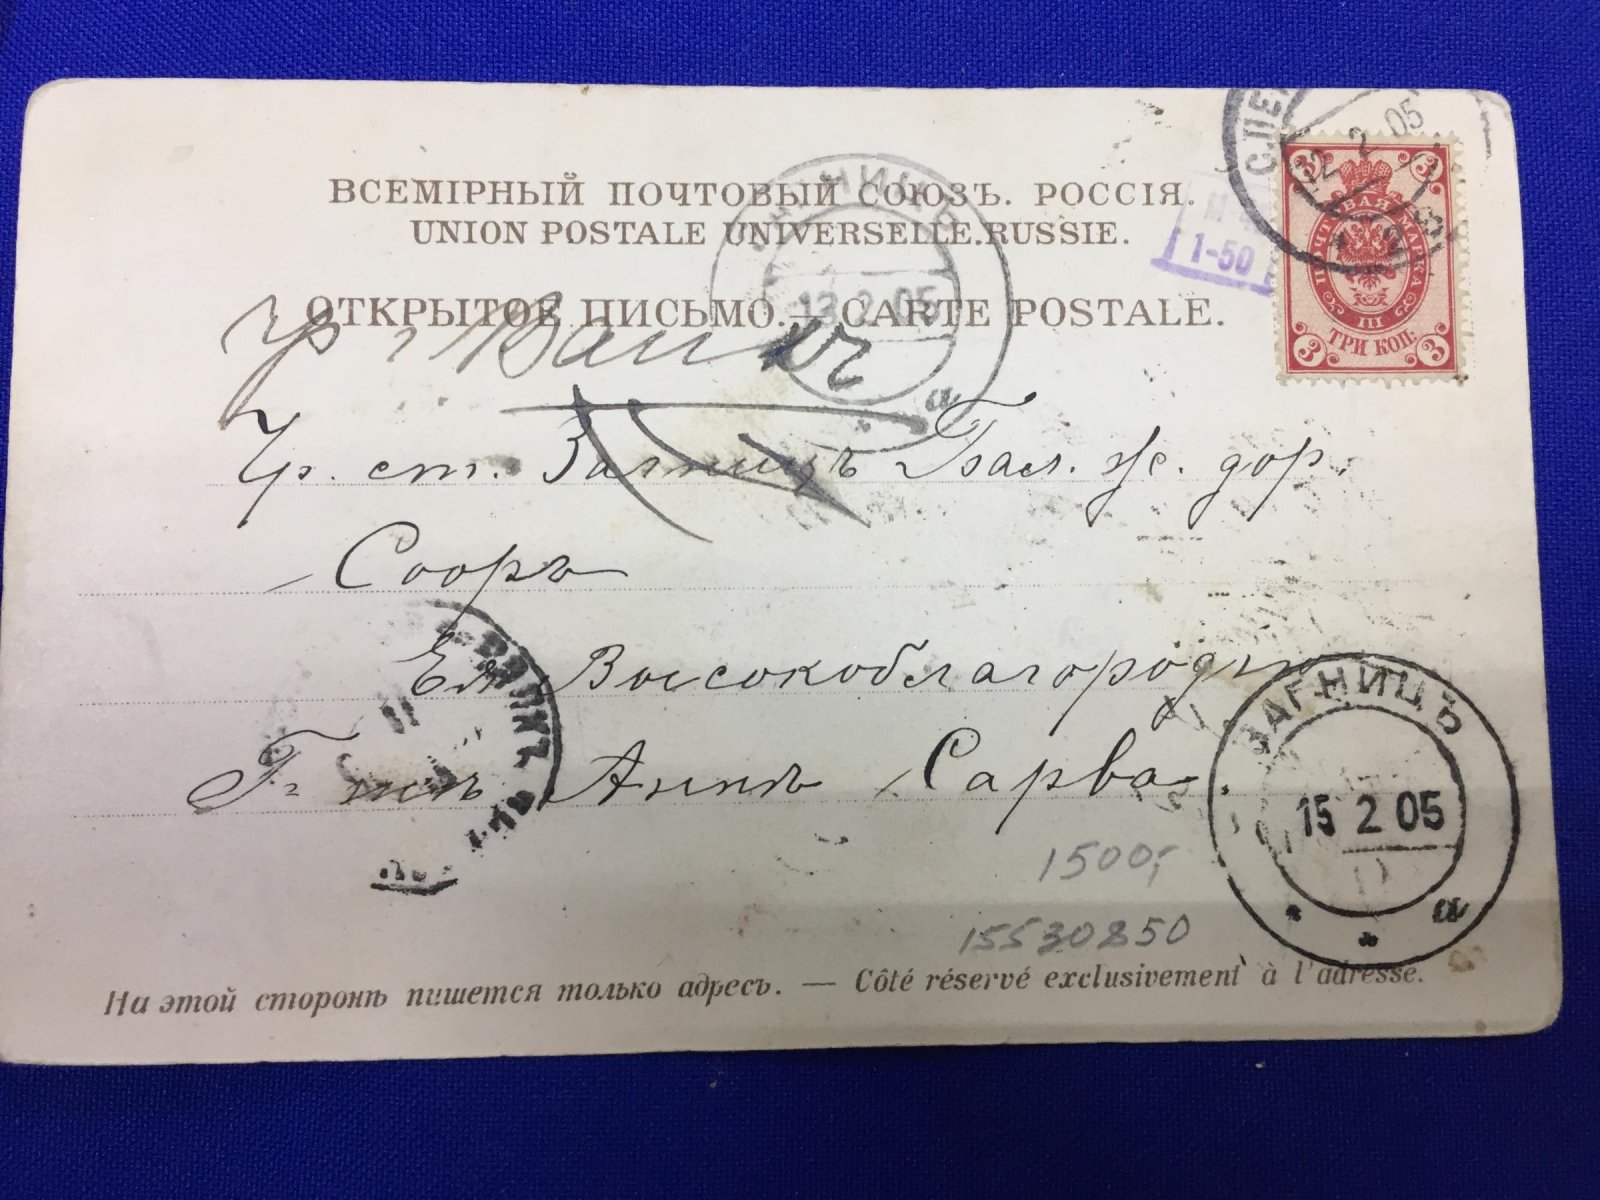 ВСЕМІРНЫЙ ПОЧТОВЫЙ СОЮЗЪ. РОССІЯ.
UNION POSTALE UNIVERSELLE. RUSSIE.
ОТКРЫТОЕ ПИСЬМО. — CARTE POSTALE.
С.ПЕ
12 2 05
3 3
ПОЧТОВАЯ МАРКА
III
ТРИ КОП.
3 3
1-50
13 2 05
а
Чр.
Чр. ст. Загницъ Бал. ж. дор.
Сооръ
Ея Высокоблагородию
Г-жѣ Аннѣ Сарва.
ЗАГНИЦЪ
15 2 05
а
1500,-
15530850
На этой сторонѣ пишется только адресъ. — Côté réservé exclusivement à l'adresse.